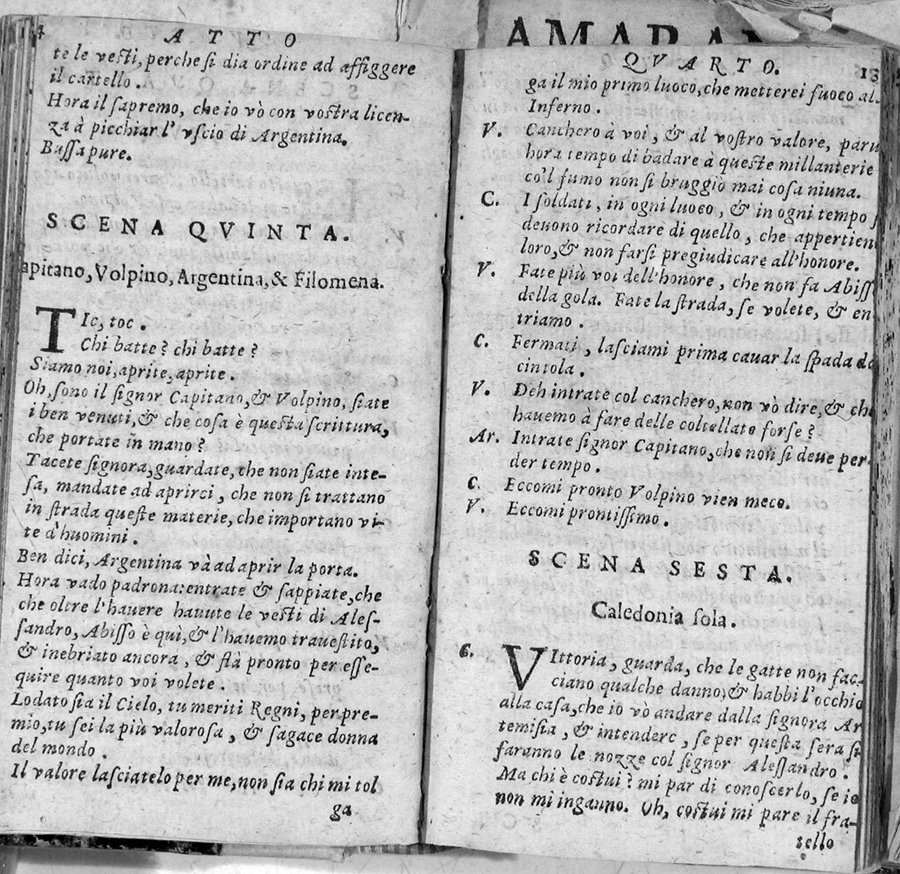 AMARAN
ATTO
te le vesti, perche si dia ordine ad affiggere
il cartello.
Hora il sapremo, che io vò con vostra licen-
za à picchiar l'vscio di Argentina.
Bussa pure.
SCENA QVINTA.
apitano, Volpino, Argentina, & Filomena.
TIc, toc.
Chi batte? chi batte?
Siamo noi, aprite, aprite.
Oh, sono il signor Capitano, & Volpino, siate
i ben venuti, & che cosa è questa scrittura,
che portate in mano?
Tacete signora, guardate, che non siate inte-
sa, mandate ad aprirci, che non si trattano
in strada queste materie, che importano vi-
te d'huomini.
Ben dici, Argentina và ad aprir la porta.
Hora vado padrona: entrate & sappiate, che
che oltre l'hauere hauute le vesti di Ales-
sandro, Abisso è quì, & l'hauemo trauestito,
& inebriato ancora, & stà pronto per esse-
quire quanto voi volete.
Lodato sia il Cielo, tu meriti Regni, per pre-
mio, tu sei la più valorosa, & sagace donna
del mondo.
Il valore lasciatelo per me, non sia chi mi tol
ga
QVARTO. 13
ga il mio primo luoco, che metterei fuoco al
Inferno.
V. Canchero à voi, & al vostro valore, paru
hora tempo di badare à queste millanterie
co'l fumo non si bruggiò mai cosa niuna.
C. I soldati, in ogni luoco, & in ogni tempo s
deuono ricordare di quello, che appertien
loro, & non farsi pregiudicare all'honore.
V. Fate più voi dell'honore, che non fa Abiss
della gola. Fate la strada, se volete, & en
triamo.
C. Fermati, lasciami prima cauar la spada da
cintola.
V. Deh intrate col canchero, non vò dire, & che
hauemo à fare delle coltellate forse?
Ar. Intrate signor Capitano, che non si deue per-
der tempo.
C. Eccomi pronto Volpino vien meco.
V. Eccomi prontissimo.
SCENA SESTA.
Caledonia sola.
6. VIttoria, guarda, che le gatte non fac-
ciano qualche danno, & habbi l'occhio
alla casa, che io vò andare dalla signora Ar
temisia, & intendere, se per questa sera si
faranno le nozze col signor Alessandro.
Ma chi è costui? mi par di conoscerlo, se io
non mi inganno. Oh, costui mi pare il fra-
tello